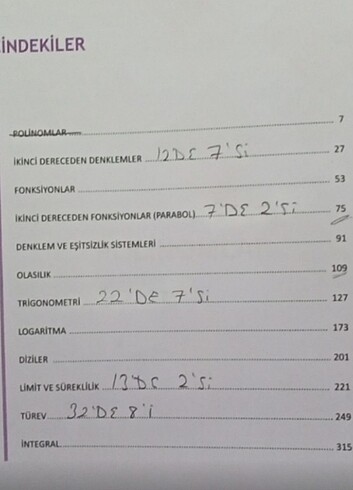 İNDEKİLER
POLİNOMLAR 7
İKİNCİ DERECEDEN DENKLEMLER 12DE 7'Si 27
FONKSİYONLAR 53
İKİNCİ DERECEDEN FONKSİYONLAR (PARABOL) 7'DE 2'Si 75
DENKLEM VE EŞİTSİZLİK SİSTEMLERİ 91
OLASILIK 109
TRİGONOMETRİ 22'DE 7'Si 127
LOGARİTMA 173
DİZİLER 201
LİMİT VE SÜREKLİLİK 13'DE 2'Si 221
TÜREV 32'DE 8'i 249
İNTEGRAL 315